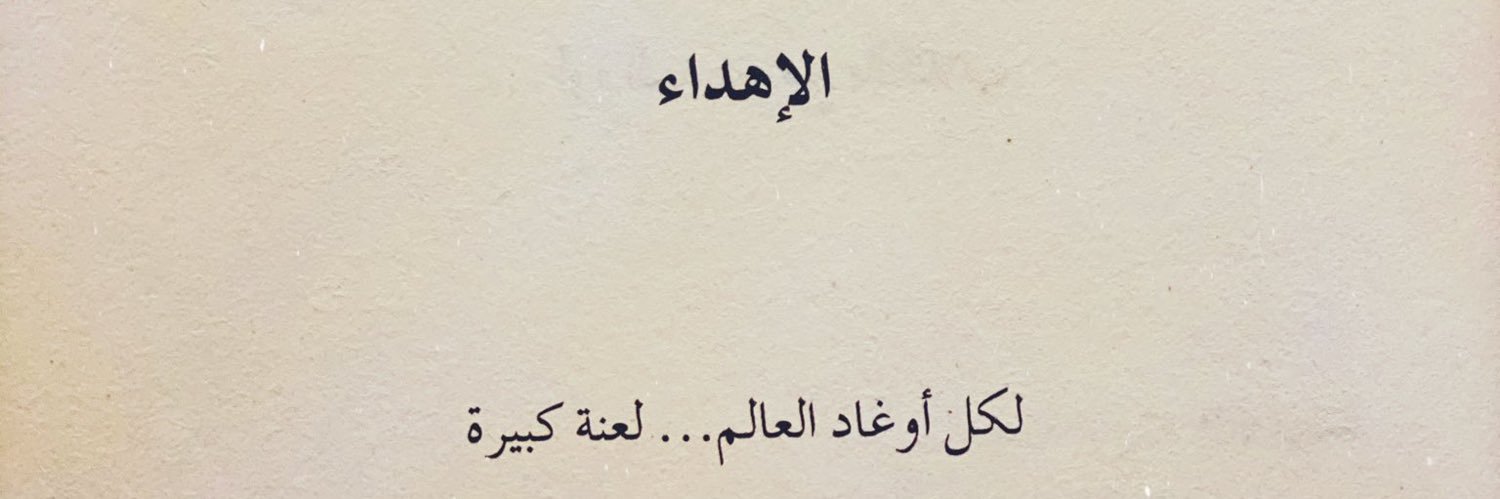 الإهداء
لكل أوغاد العالم... لعنة كبيرة